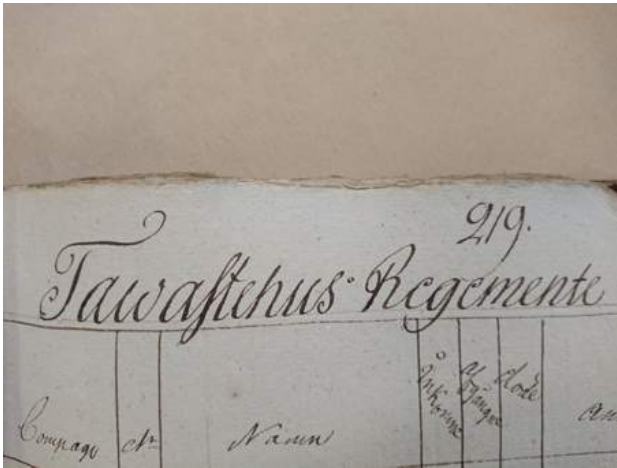 219.
Tawastehus Regemente
Compagn
No
Namn
Inkomne
Afgångne
döde
an